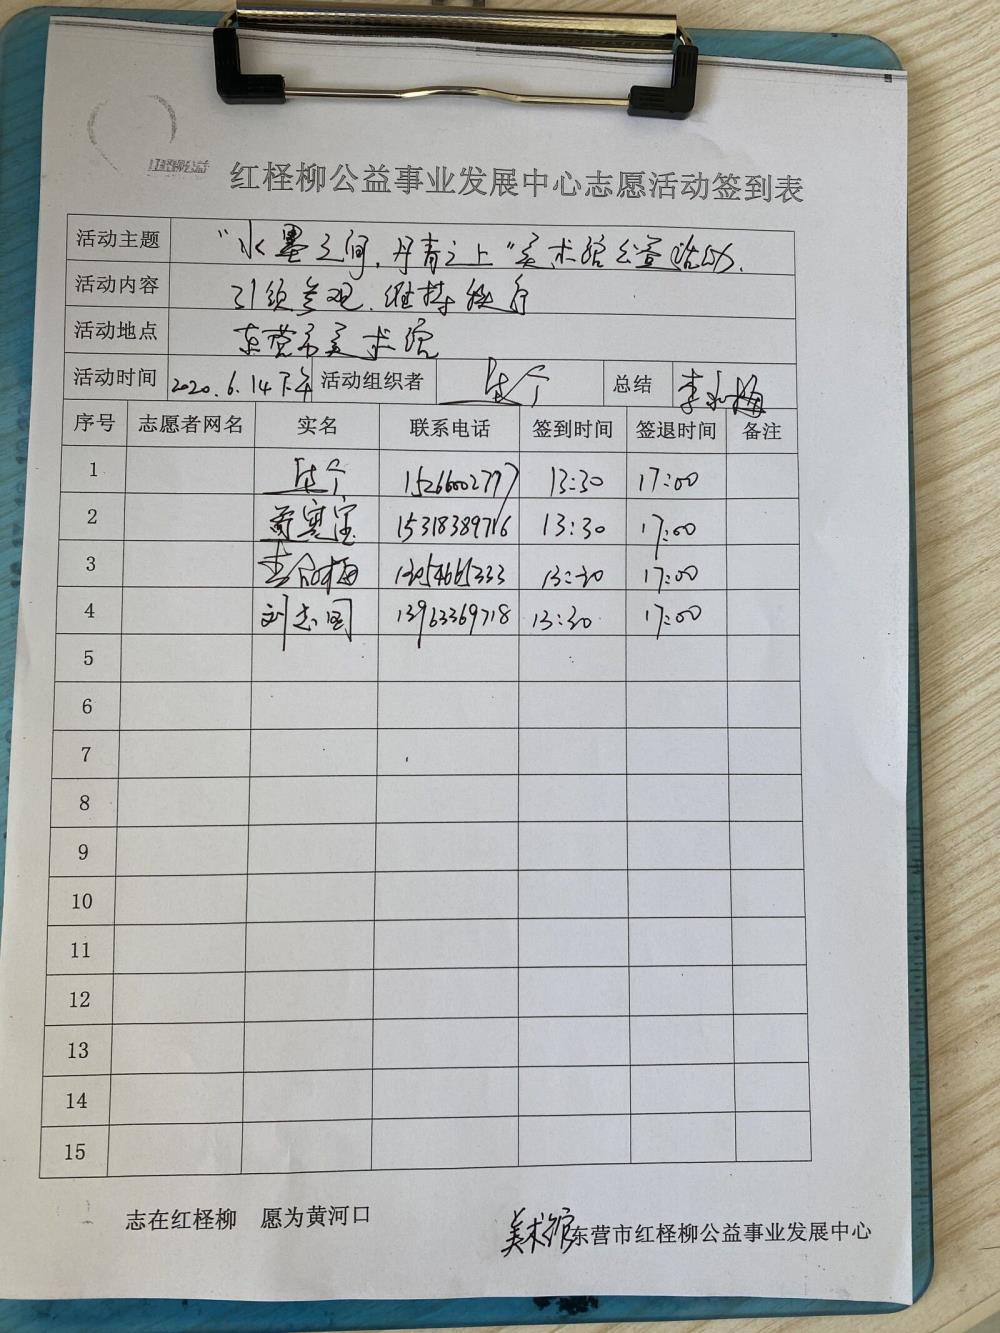 红柽柳公益
红柽柳公益事业发展中心志愿活动签到表
活动主题 "水墨之间,丹青之上"美术馆公益活动.
活动内容 引领参观.维持秩序
活动地点 东营市美术馆
活动时间 2020.6.14下午 活动组织者 总结
序号 志愿者网名 实名 联系电话 签到时间 签退时间 备注
1 15266002797 13:30 17:00
2 15318389716 13:30 17:00
3 13054665333 13:30 17:00
4 刘志国 13963369718 13:30 17:00
5
6
7
8
9
10
11
12
13
14
15
志在红柽柳 愿为黄河口
美术馆 东营市红柽柳公益事业发展中心